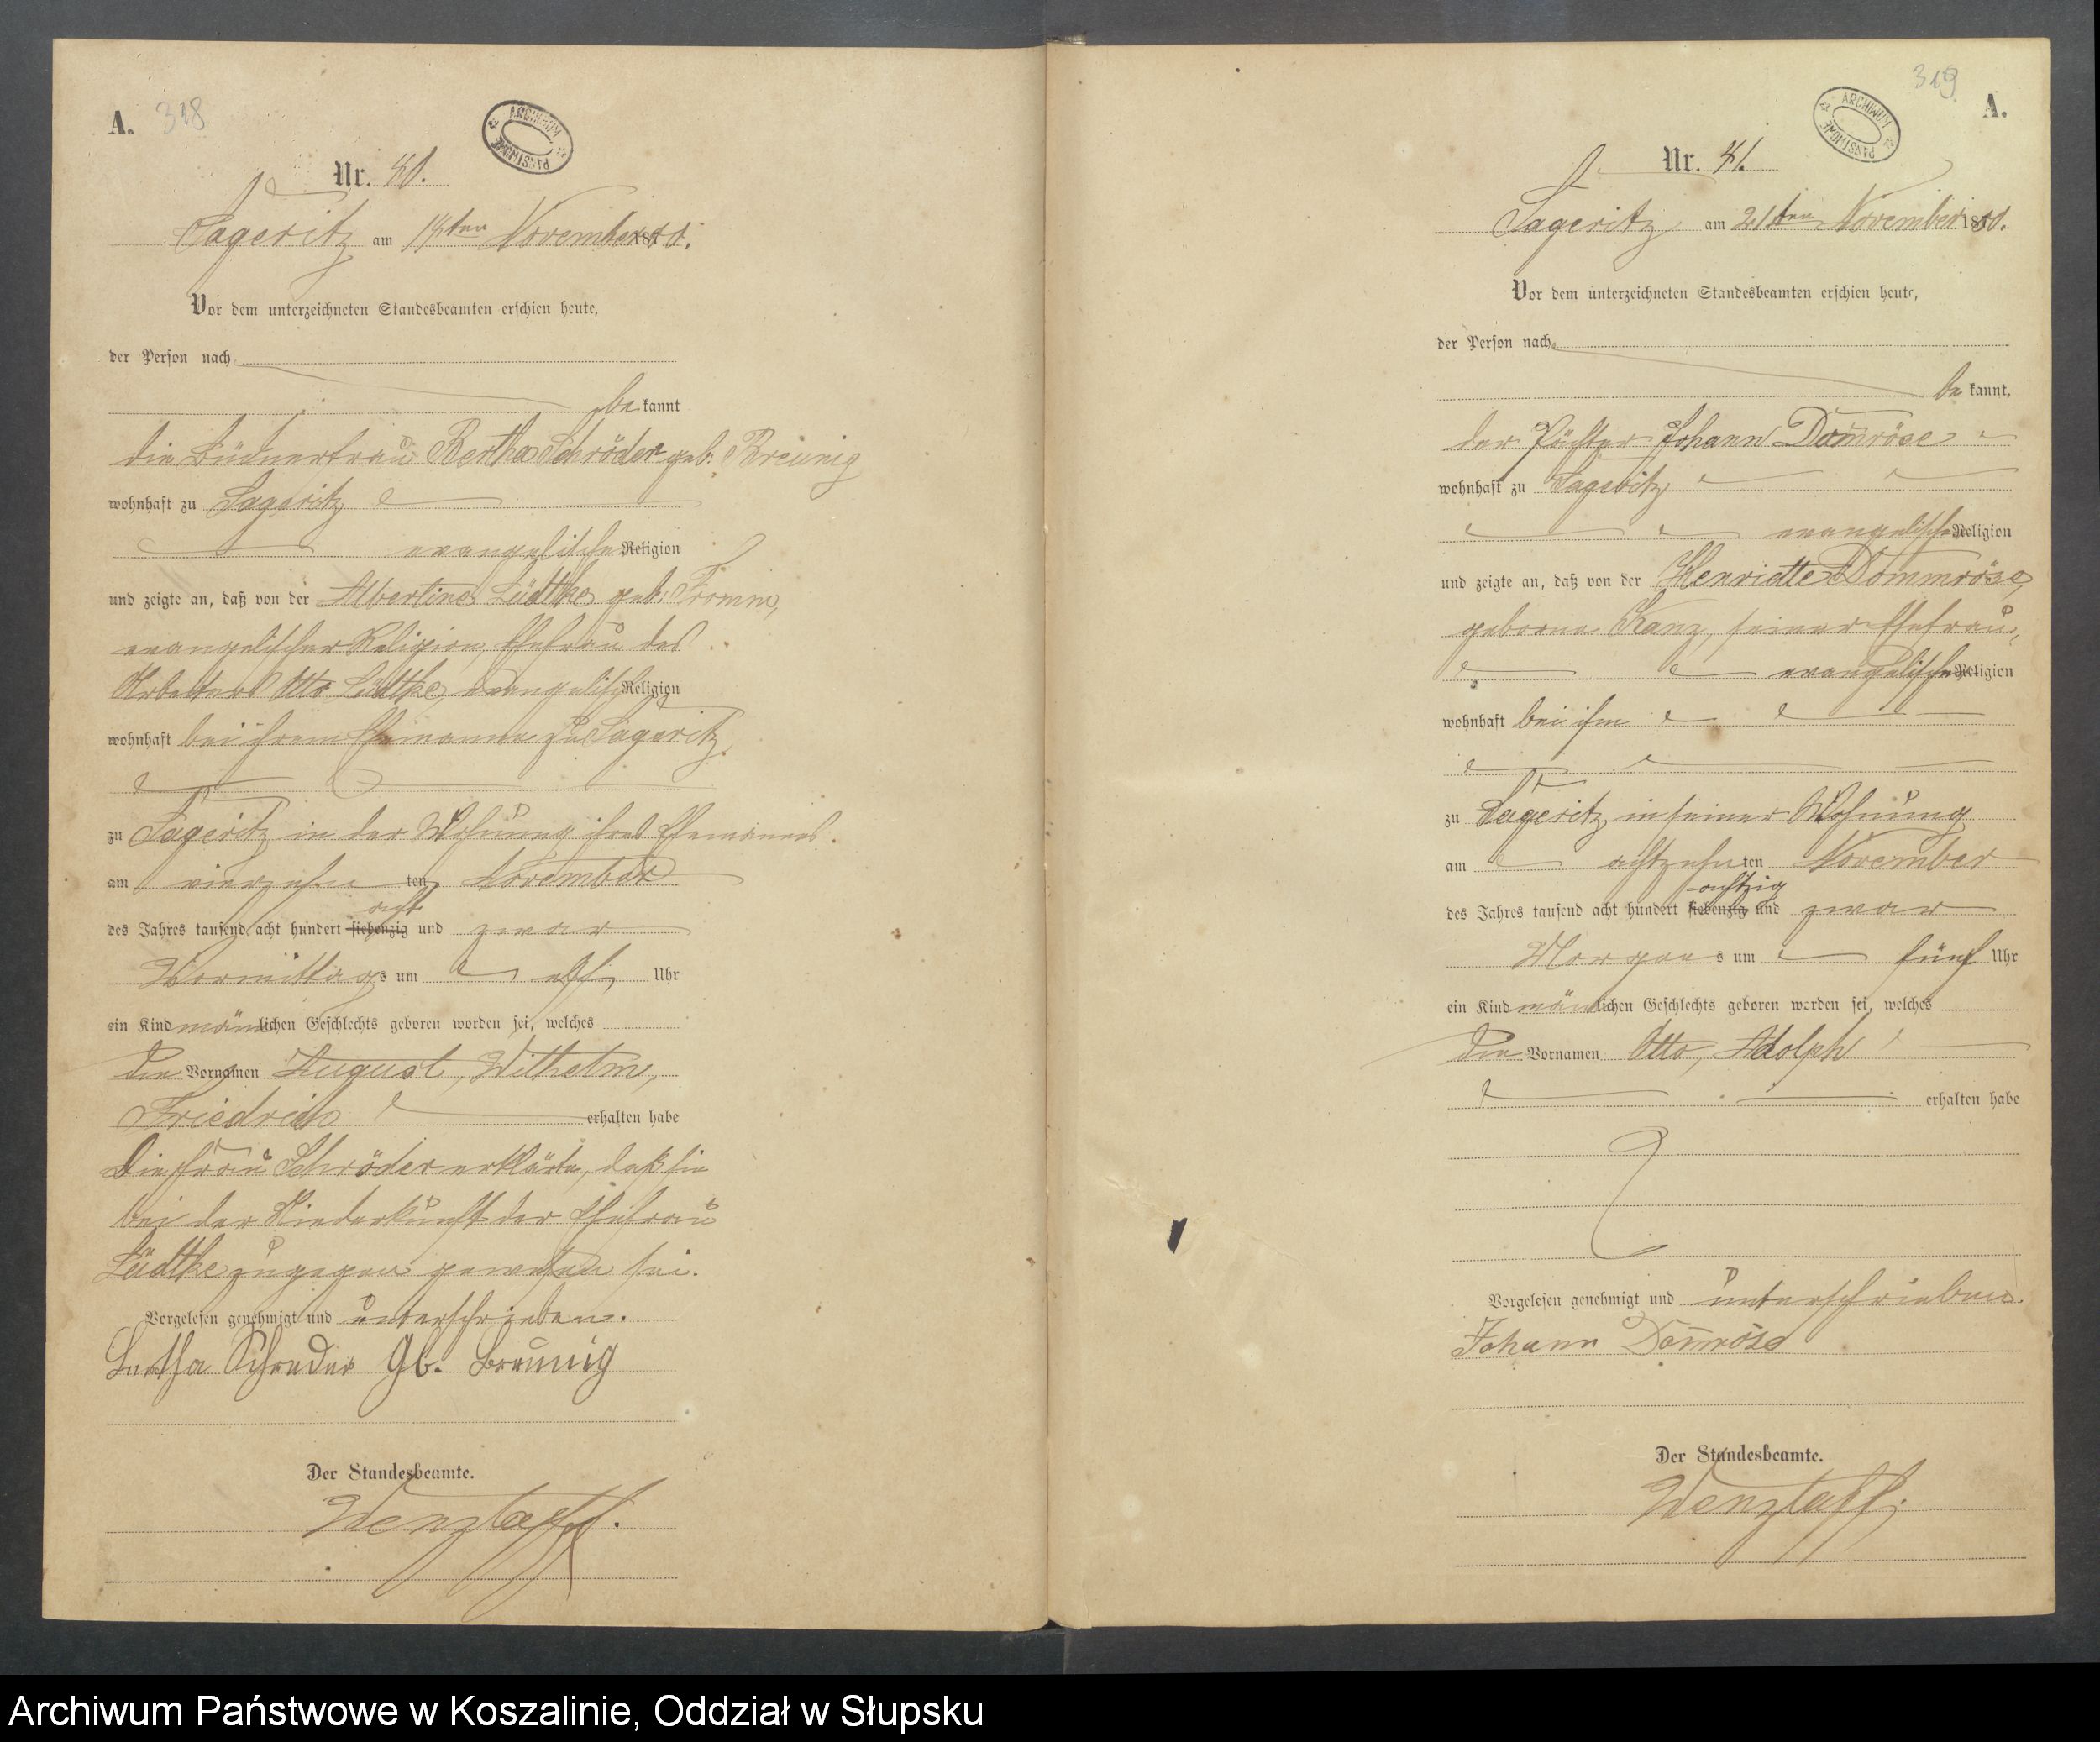 A. 318
ARCHIWUM PAŃSTWOWE
Nr. 40.
Sageritz am 14ten November 1880.
Vor dem unterzeichneten Standesbeamten erschien heute,
der Person nach
bekannt
die Büdnerfrau Bertha Schröder geb. Breunig
wohnhaft zu Sageritz
evangelischer Religion
und zeigte an, daß von der Albertine Lüdtke geb. Fromm,
evangelischer Religion, Ehefrau des
Arbeiters Otto Lüdtke, evangelisch Religion
wohnhaft bei ihrem Ehemanne zu Sageritz
zu Sageritz in der Wohnung ihres Ehemannes
am vierzehnten November
acht
des Jahres tausend acht hundert siebenzig und zwar
Vormittags um elf Uhr
ein Kind männlichen Geschlechts geboren worden sei, welches
die Vornamen August, Wilhelm,
Friedrich erhalten habe
Die Frau Schröder erklärte, daß sie
bei der Niederkunft der Ehefrau
Lüdtke zugegen gewesen sei.
Vorgelesen genehmigt und unterschrieben.
Bertha Schreder Gb. Breunig
Der Standesbeamte.
319 A.
ARCHIWUM PAŃSTWOWE
Nr. 41.
Sageritz am 21ten November 1880.
Vor dem unterzeichneten Standesbeamten erschien heute,
der Person nach
bekannt,
der Pächter Johann Domröse
wohnhaft zu Sageritz
evangelischer Religion
und zeigte an, daß von der Henriette Dommröse,
geborne Kanz, seiner Ehefrau,
evangelischer Religion
wohnhaft bei ihm
zu Sageritz in seiner Wohnung
am achtzehnten November
achtzig
des Jahres tausend acht hundert siebenzig und zwar
Morgens um fünf Uhr
ein Kind männlichen Geschlechts geboren worden sei, welches
die Vornamen Otto, Adolph
erhalten habe
Vorgelesen genehmigt und unterschrieben.
Johann Dom̄röse
Der Standesbeamte.
Archiwum Państwowe w Koszalinie, Oddział w Słupsku